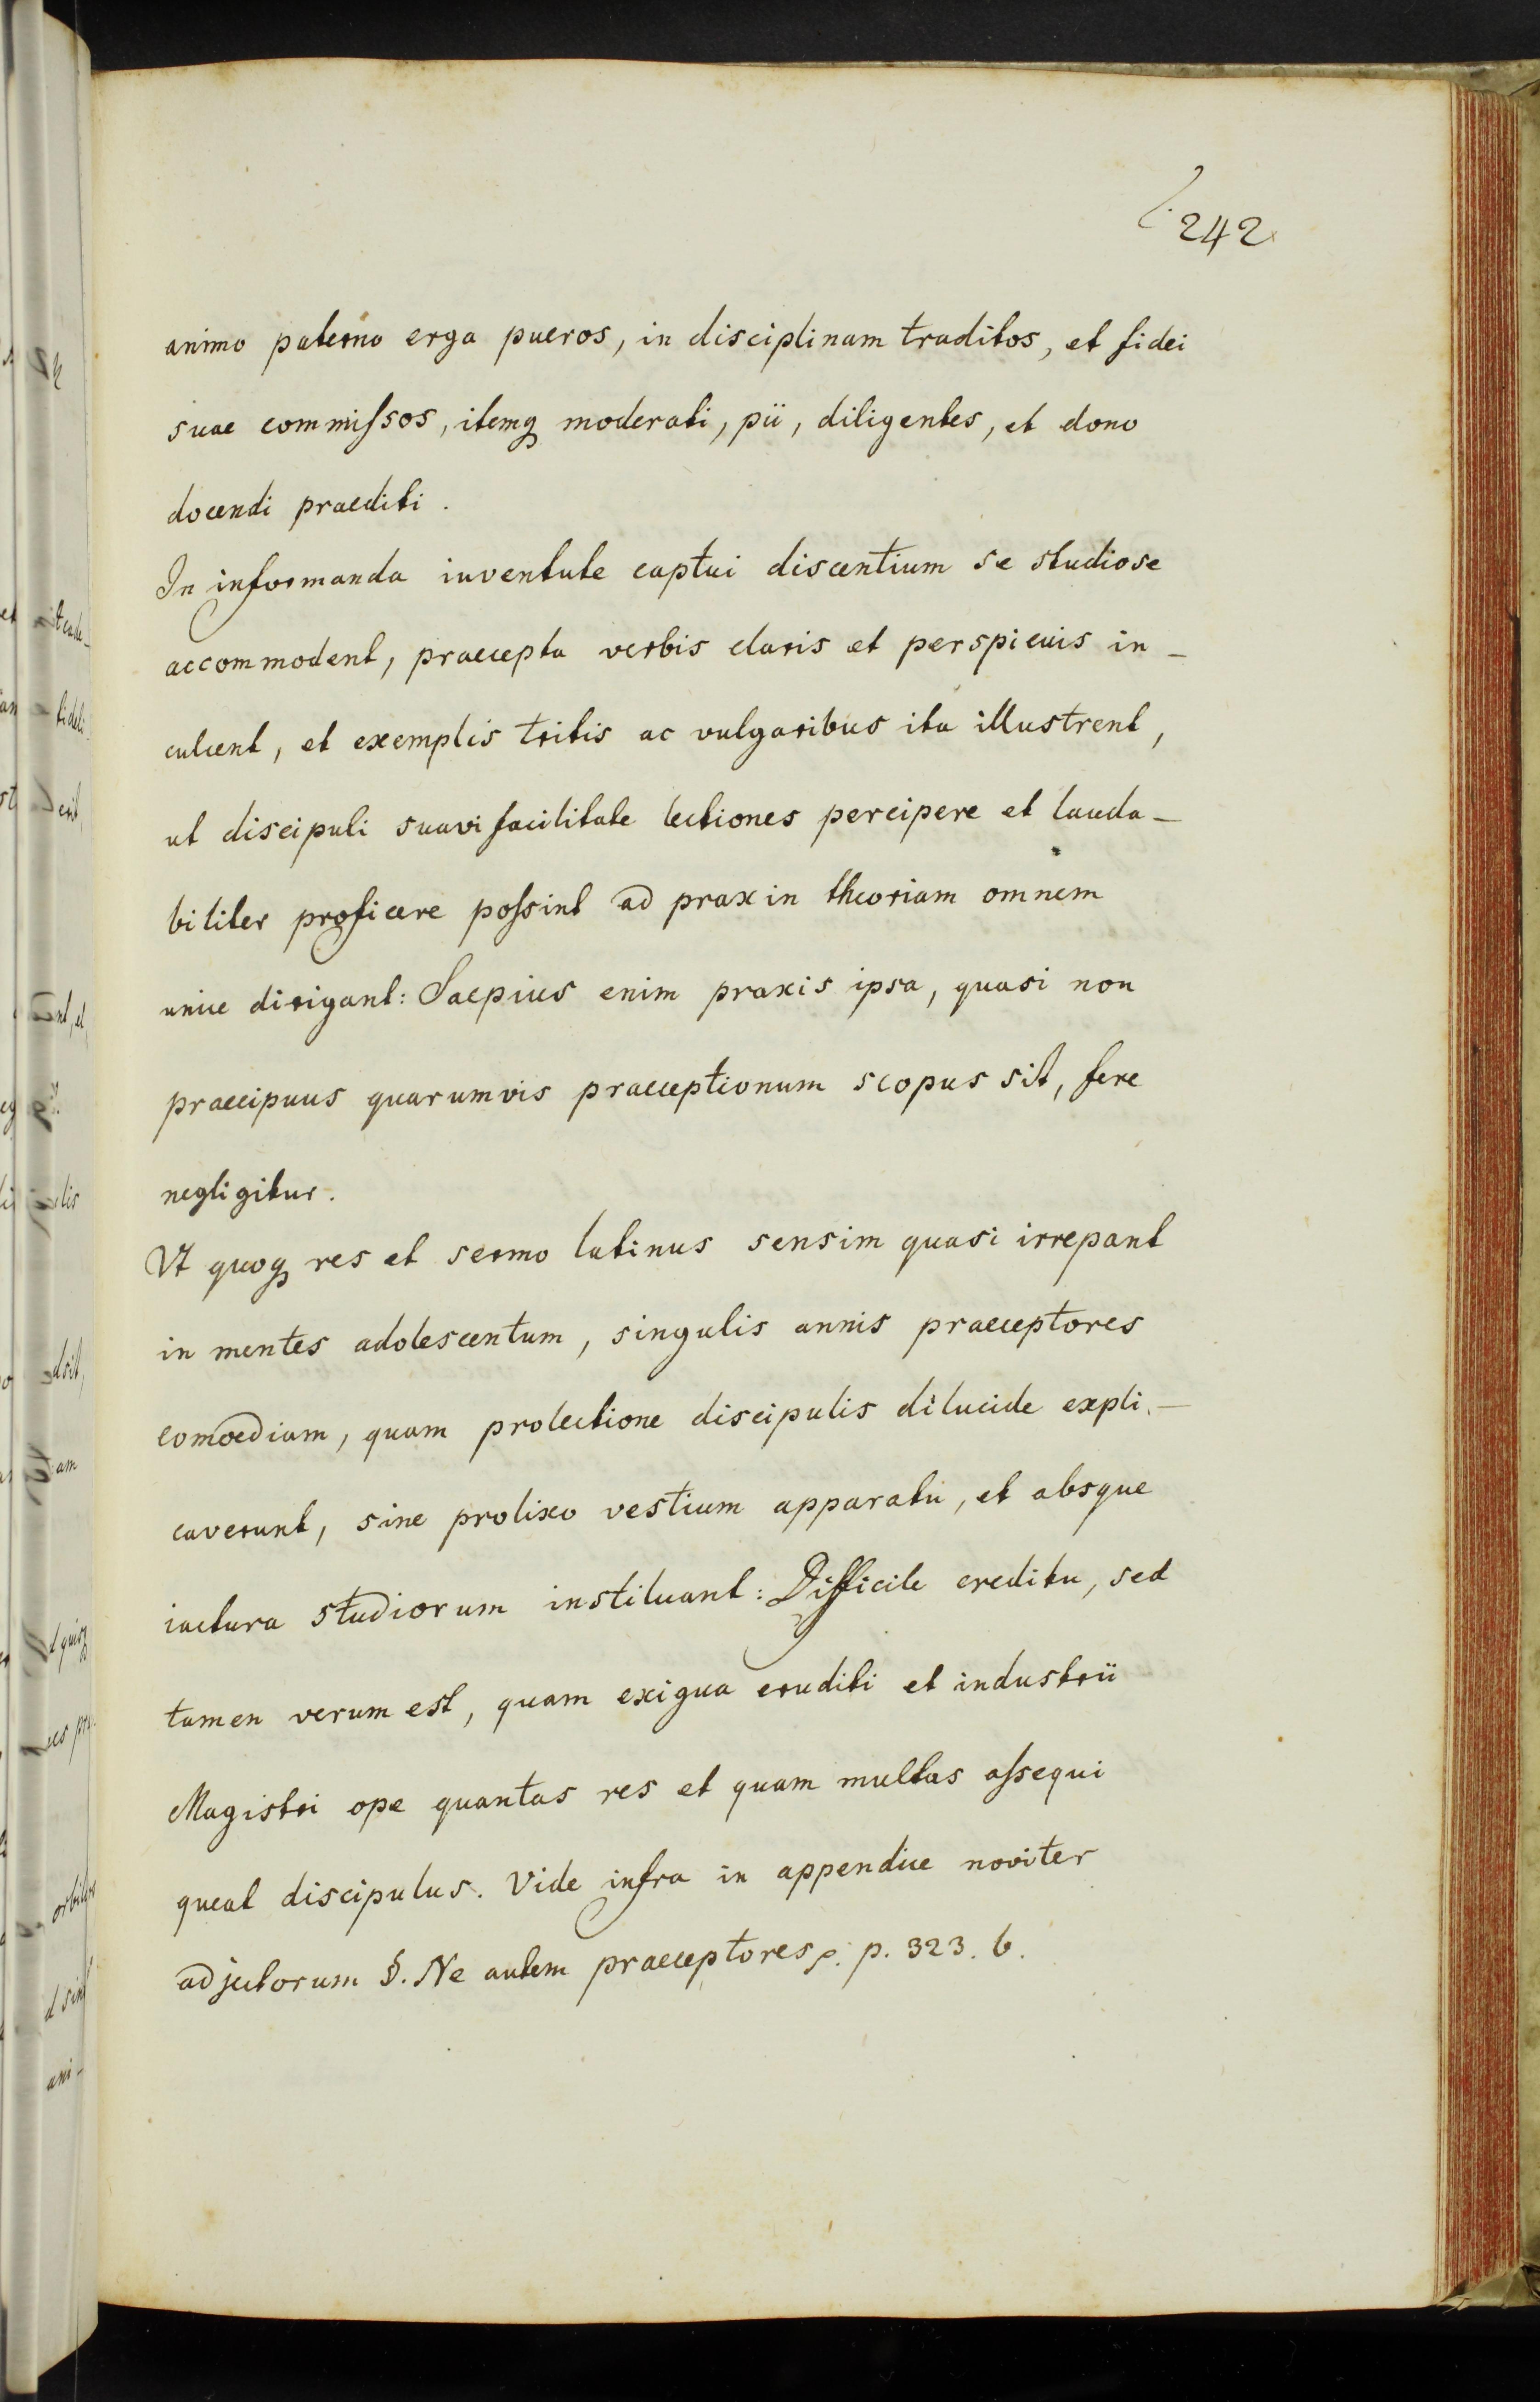 242
animo paterno erga pueros, in disciplinam traditos, et fidei
suae commiſsos, itemq moderati, pii, diligentes, et dono
docendi praediti.
In informanda iuventute captui discentium se studiose
accommodent, praecepta verbis claris et perspicuis in-
culcent, et exemplis tritis ac vulgaribus ita illustrent,
ut discipuli suavi facilitate lectiones percipere et lauda-
biliter proficere poſsint ad praxin theoriam omnem
unice dirigant: Saepius enim praxis ipsa, quasi non
praecipuus quarumvis praeceptionum scopus sit, fere
negligitur.
Vt quoq res et sermo latinus sensim quasi irrepant
in mentes adolescentum, singulis annis praeceptores
comoediam, quam prolectione discipulis dilucide expli-
caverunt, sine prolixo vestium apparatu, et absque
iactura studiorum instituant: Difficile creditu, sed
tamen verum est, quam exigua eruditi et industrii
Magistri ope quantas res et quam multas aſsequi
queat discipulus. Vide infra in appendice noviter
adjectorum §. Ne autem praeceptores p. 323. b.